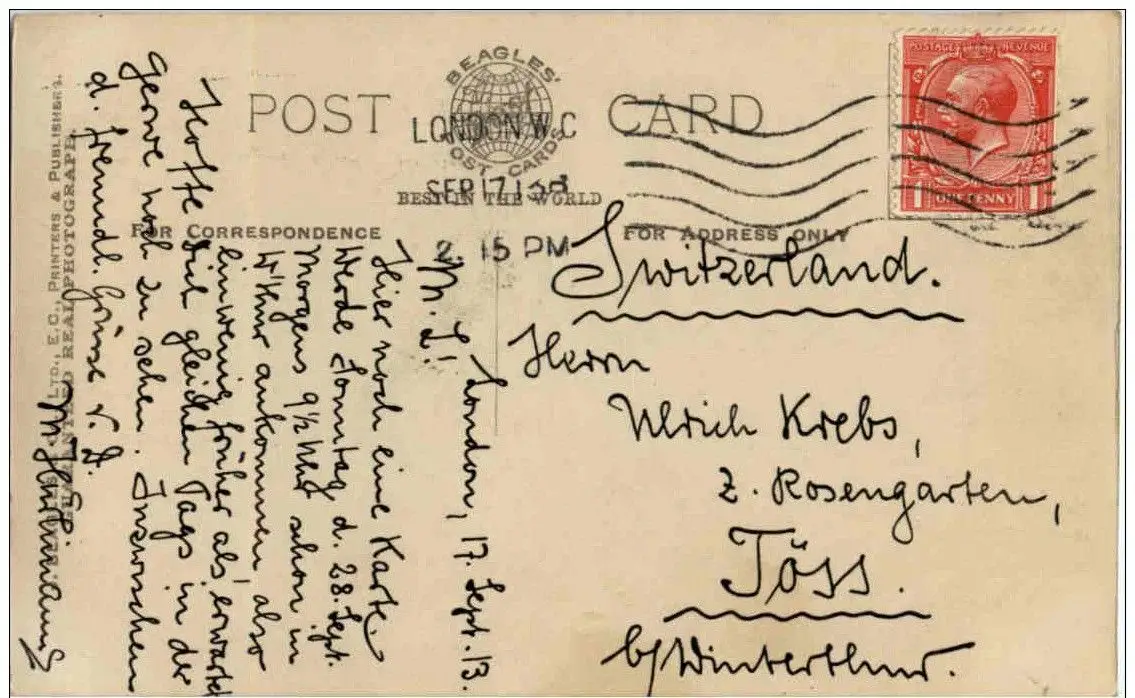 POST CARD
BEAGLES'
POST CARDS
BEST IN THE WORLD
LONDON. W.C
SEP 17 13
2. 15 PM
POSTAGE REVENUE
1 ONE PENNY 1
FOR CORRESPONDENCE
FOR ADDRESS ONLY
LTD., E.C., PRINTERS & PUBLISHERS.
GUARANTEED REAL PHOTOGRAPH.
London, 17. Sept. 13.
M. L!
Hier noch eine Karte.
Werde Sonntag d. 28. Sept.
Morgens 9½ Uhr schon in
W'thur ankommen, also
ein wenig früher als erwartet
Hoffe Dich gleichen Tags in der
Gerwe noch zu sehen. Inzwischen
d. freundl. Grüsse v. D.
Switzerland.
Herrn
Ulrich Krebs,
z. Rosengarten,
Töss.
b/Winterthur.